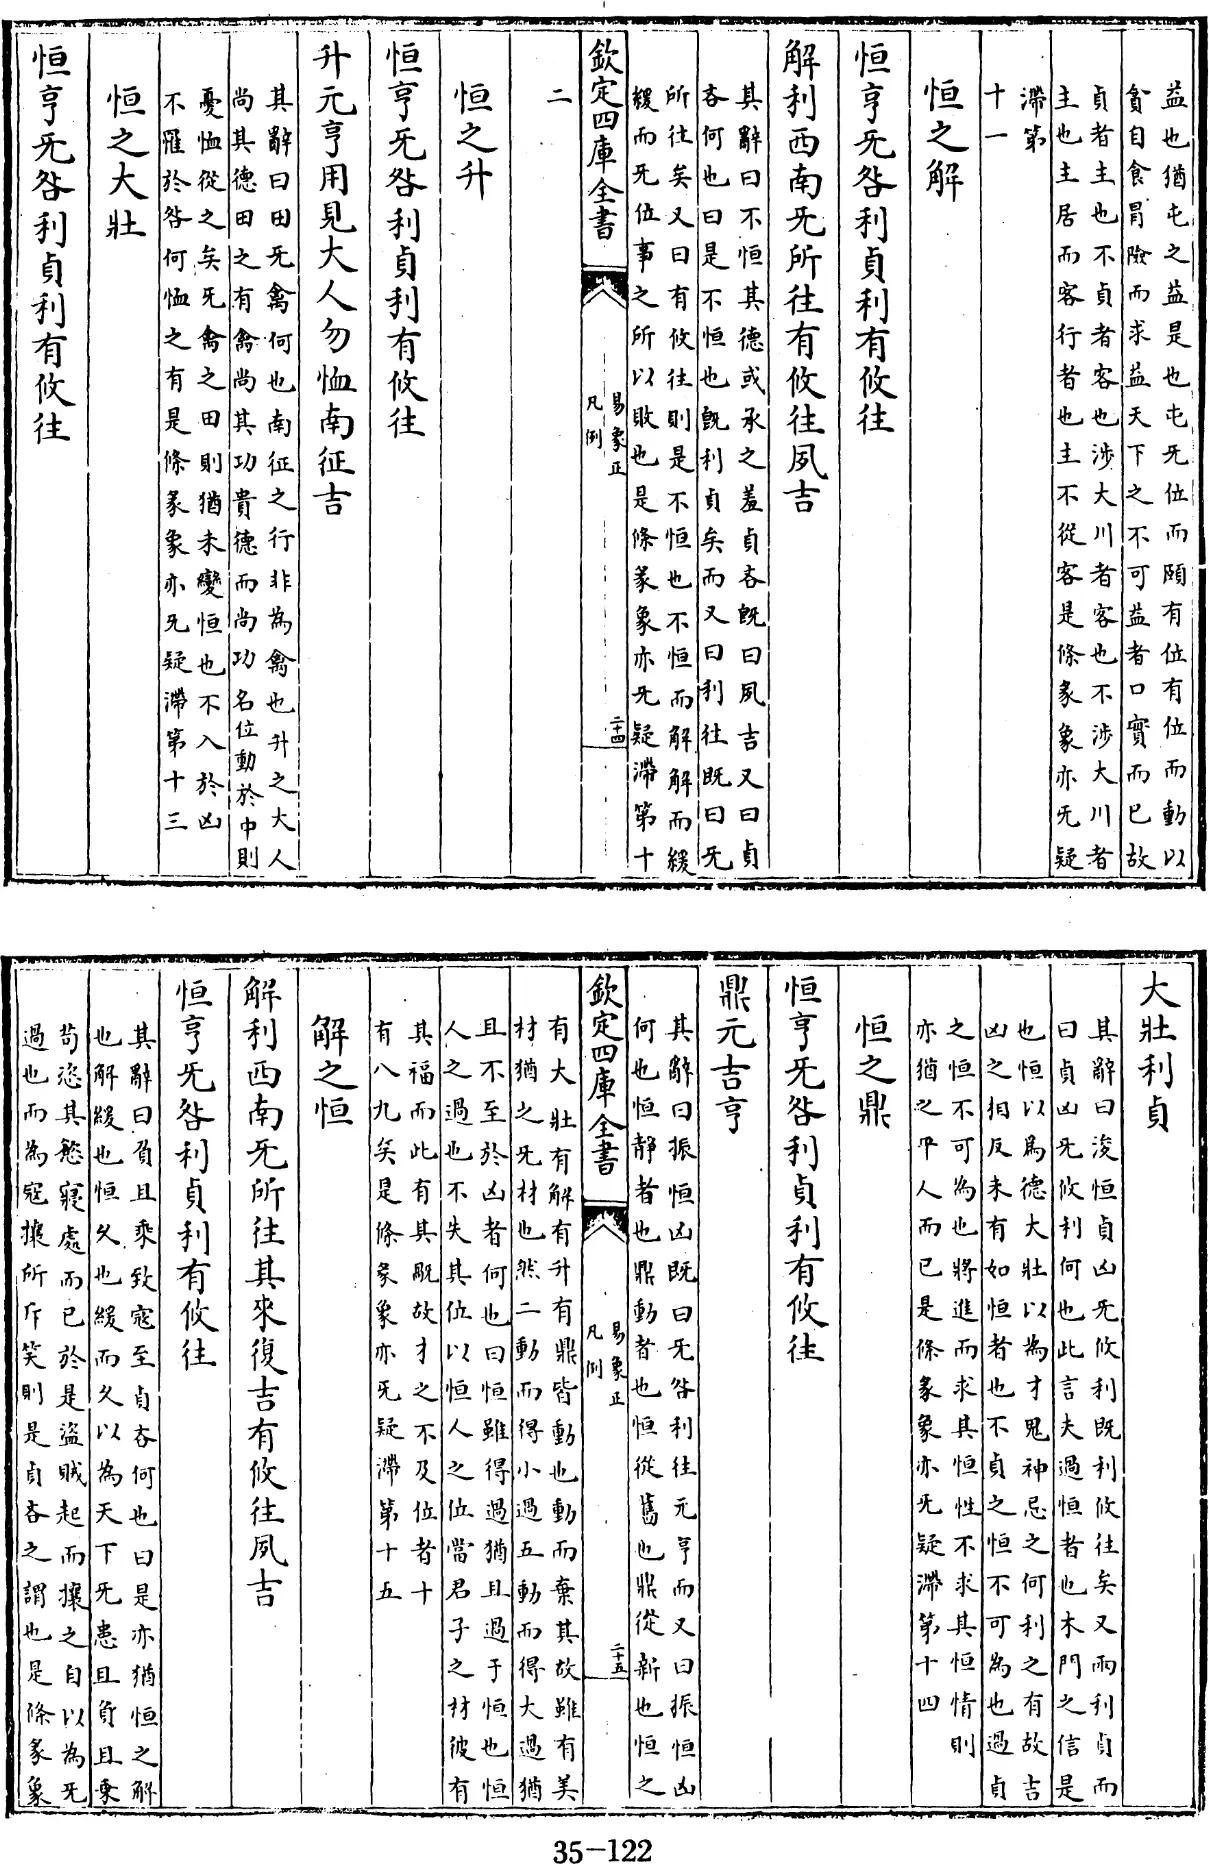 益也猶屯之益是也屯旡位而頤有位有位而動以
貪自食冒險而求益天下之不可益者口實而已故
貞者主也不貞者客也涉大川者客也不涉大川者
主也主居而客行者也主不從客是條彖象亦旡疑
滯第
十一
恒之解
恒亨旡咎利貞利有攸往
解利西南旡所往有攸往夙吉
其辭曰不恒其德或承之羞貞吝既曰夙吉又曰貞
吝何也曰是不恒也既利貞矣而又曰利往既曰旡
所往矣又曰有攸往則是不恒也不恒而解解而緩
緩而旡位事之所以敗也是條彖象亦旡疑滯第十
欽定四庫全書
易象正
凡例
二十四
二
恒之升
恒亨旡咎利貞利有攸往
升元亨用見大人勿恤南征吉
其辭曰田旡禽何也南征之行非為禽也升之大人
尚其德田之有禽尚其功貴德而尚功名位動於中則
憂恤從之矣旡禽之田則猶未變恒也不入於凶
不罹於咎何恤之有是條彖象亦旡疑滯第十三
恒之大壯
恒亨旡咎利貞利有攸往
大壯利貞
其辭曰浚恒貞凶旡攸利既利攸往矣又兩利貞而
曰貞凶旡攸利何也此言夫過恒者也木門之信是
也恒以為德大壯以為才鬼神忌之何利之有故吉
凶之相反未有如恒者也不貞之恒不可為也過貞
之恒不可為也將進而求其恒性不求其恒情則
亦猶之平人而已是條彖象亦旡疑滯第十四
恒之鼎
恒亨旡咎利貞利有攸往
鼎元吉亨
其辭曰振恒凶既曰旡咎利往元亨而又曰振恒凶
何也恒靜者也鼎動者也恒從舊也鼎從新也恒之
欽定四庫全書
易象正
凡例
二十五
有大壯有解有升有鼎皆動也動而棄其故雖有美
材猶之旡材也然二動而得小過五動而得大過猶
且不至於凶者何也曰恒雖得過猶且過于恒也恒
人之過也不失其位以恒人之位當君子之材彼有
其福而此有其㫁故才之不及位者十
有八九矣是條彖象亦旡疑滯第十五
解之恒
解利西南旡所往其來復吉有攸往夙吉
恒亨旡咎利貞利有攸往
其辭曰負且乘致寇至貞吝何也曰是亦猶恒之解
也解緩也恒久也緩而久以為天下旡患且負且乗
苟恣其慾寢處而已於是盜賊起而攘之自以為旡
過也而為寇攘所斥笑則是貞吝之謂也是條彖象
35-122